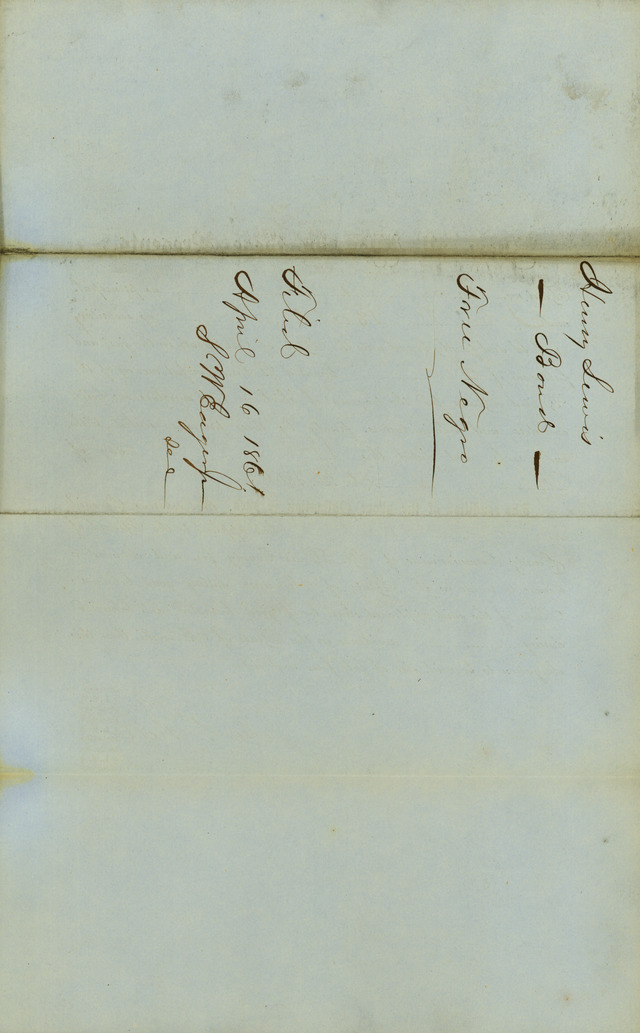 Henry Lewis
— Bond —
Free Negro
Filed
April 16 1861
S W Eager Jr